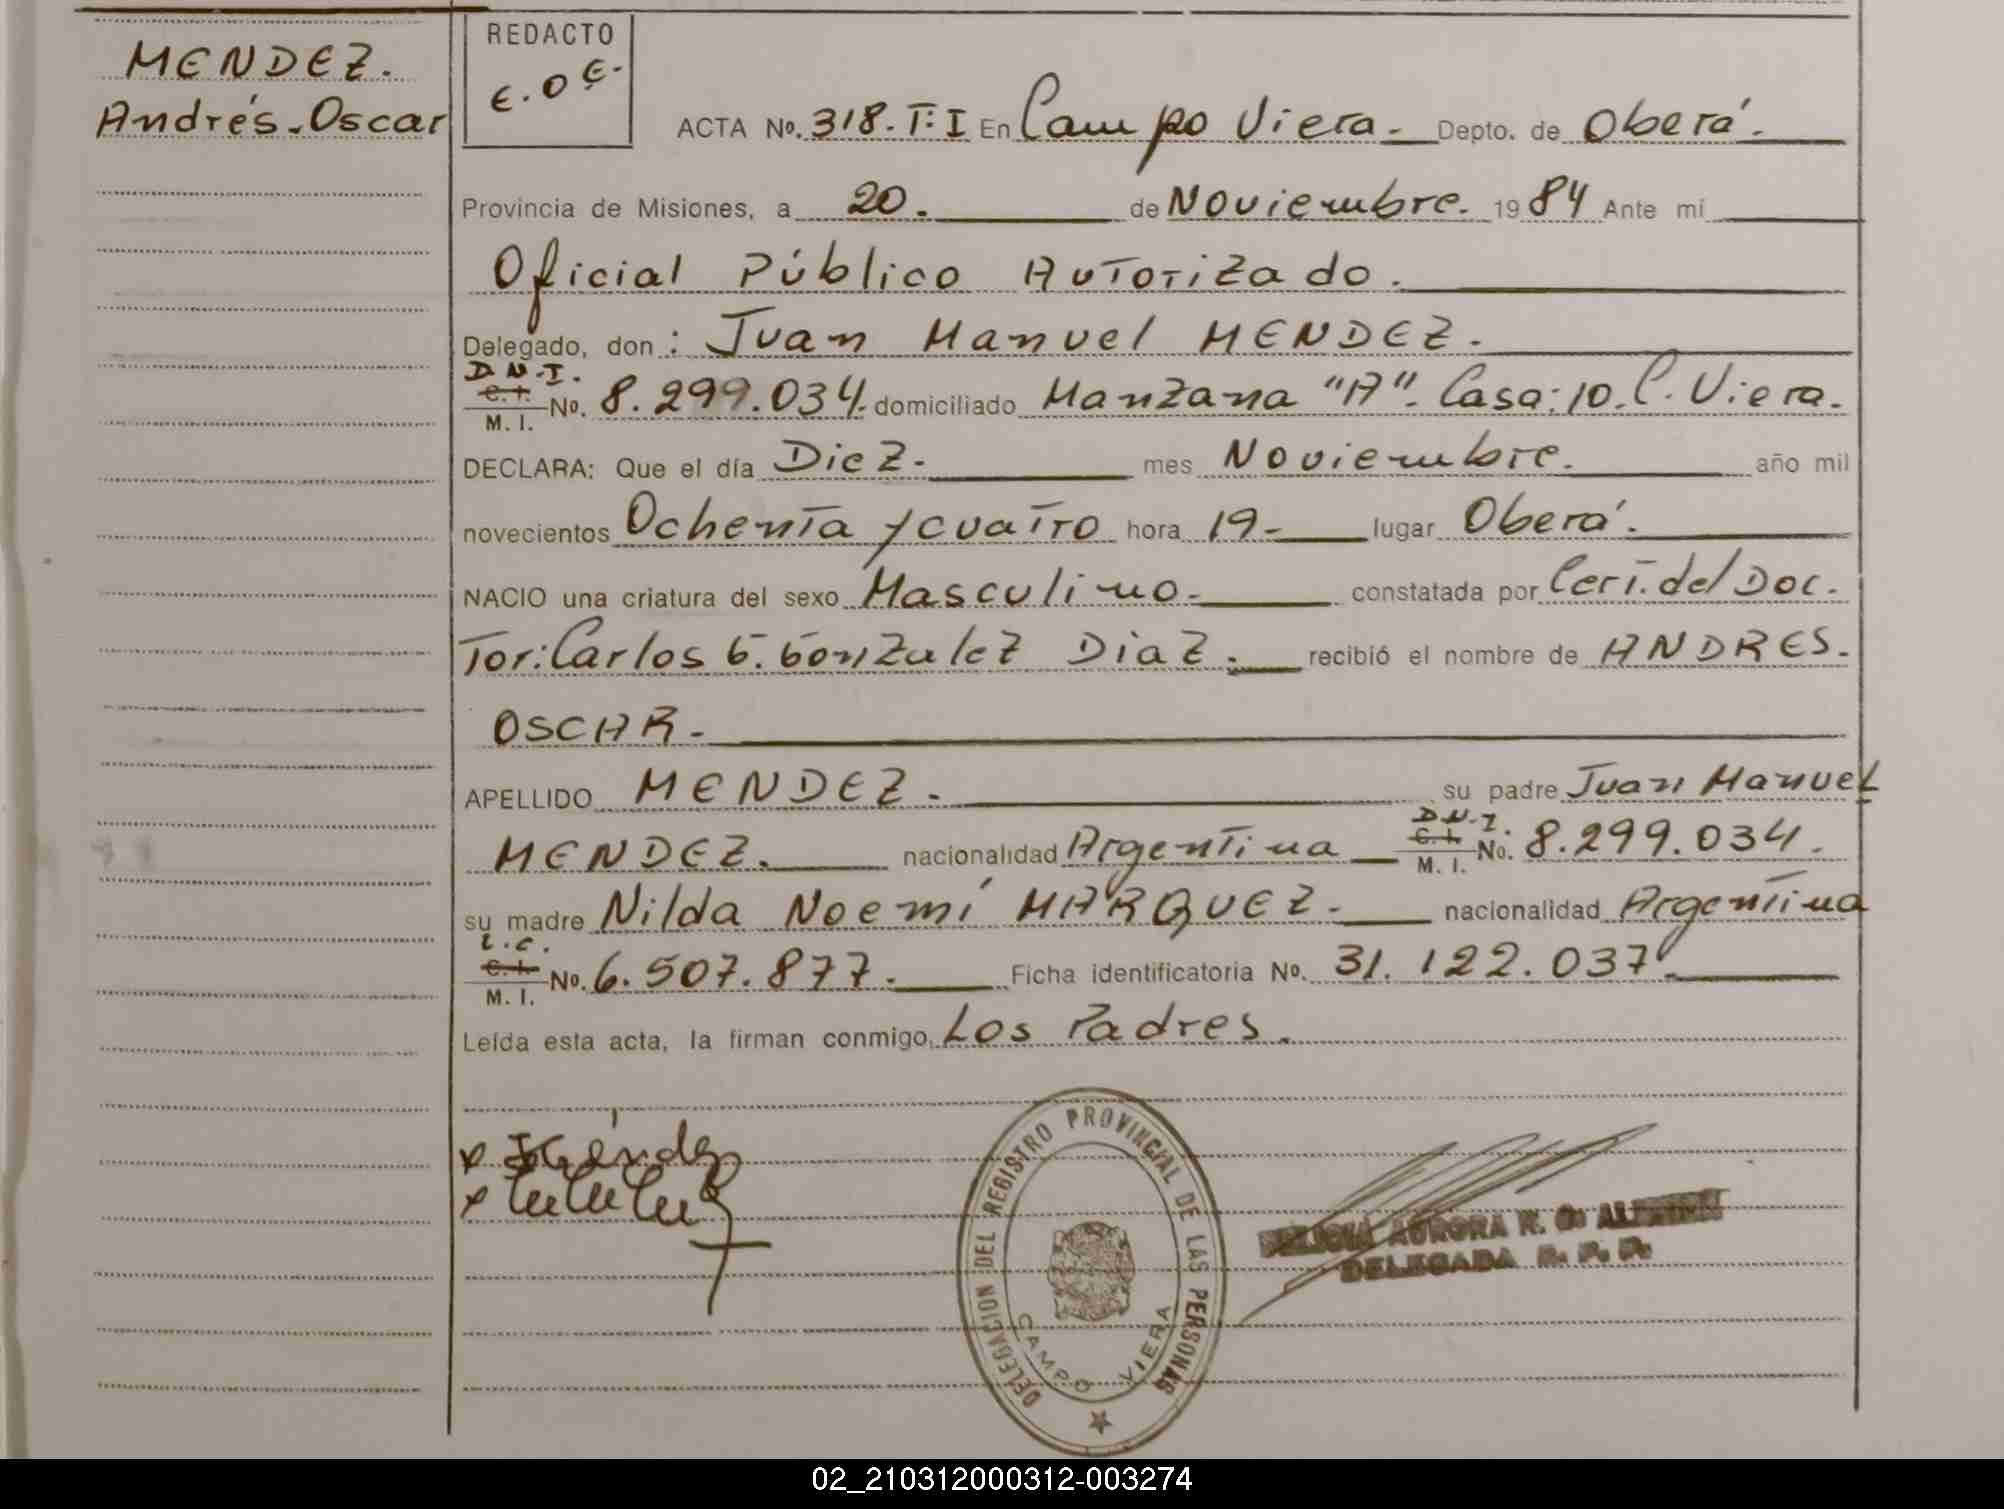 MENDEZ.
Andrés.Oscar
REDACTO
E.O E.
ACTA No. 318.T:I En Campo Viera. Depto. de Oberá.
Provincia de Misiones, a 20. de Noviembre. 1984 Ante mí
Oficial Público Autorizado.
Delegado, don: Juan Manuel MENDEZ.
D.N.I.
C.I.
M. I. No. 8.299.034. domiciliado Manzana "A". Casa:10. C. Viera.
DECLARA: Que el día Diez. mes Noviembre. año mil
novecientos Ochenta y cuatro hora 19- lugar Oberá.
NACIO una criatura del sexo Masculino. constatada por Cert. del Doc.
Tor: Carlos G. Gonzalez Diaz. recibió el nombre de ANDRES.
OSCAR.
APELLIDO MENDEZ. su padre Juan Manuel
MENDEZ. nacionalidad Argentina D.N.I. C.I. M. I. No. 8.299.034.
su madre Nilda Noemí MARQUEZ. nacionalidad Argentina
L.C.
C.I.
M. I. No. 6.507.877. Ficha identificatoria No. 31.122.037.
Leída esta acta, la firman conmigo, Los Padres.
DELEGACION DEL REGISTRO PROVINCIAL DE LAS PERSONAS
CAMPO VIERA
AURORA R. G.
DELEGADA R. P. P.
02_210312000312-003274